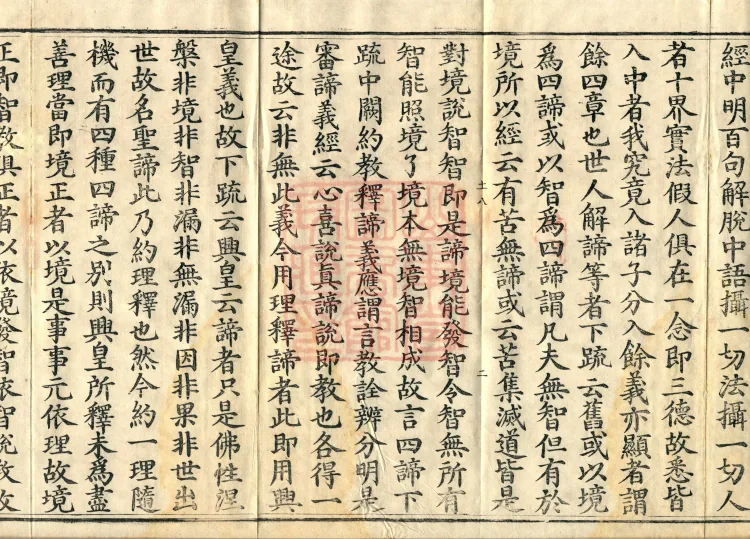 經中明百句解脫中語攝一切法攝一切人
者十界實法假人俱在一念即三德故悉皆
入中者我究竟入諸子分入餘義亦顯者謂
餘四章也世人解諦等者下疏云舊或以境
爲四諦或以智爲四諦謂凡夫無智但有於
境所以經云有苦無諦或云苦集滅道皆是
對境說智智即是諦境能發智令智無所有
智能照境了境本無境智相成故言四諦下
疏中闕約教釋諦義應謂言教詮辨分明是
審諦義經云心喜說真諦說即教也各得一
途故云非無此義今用理釋諦者此即用興
皇義也故下疏云興皇云諦者只是佛性涅
槃非境非智非漏非無漏非因非果非世出
世故名聖諦此乃約理釋也然今約一理隨
機而有四種四諦之別則興皇所釋未爲盡
善理當即境正者以境是事事元依理故境
正即智教俱正者以依境發智依智說教故